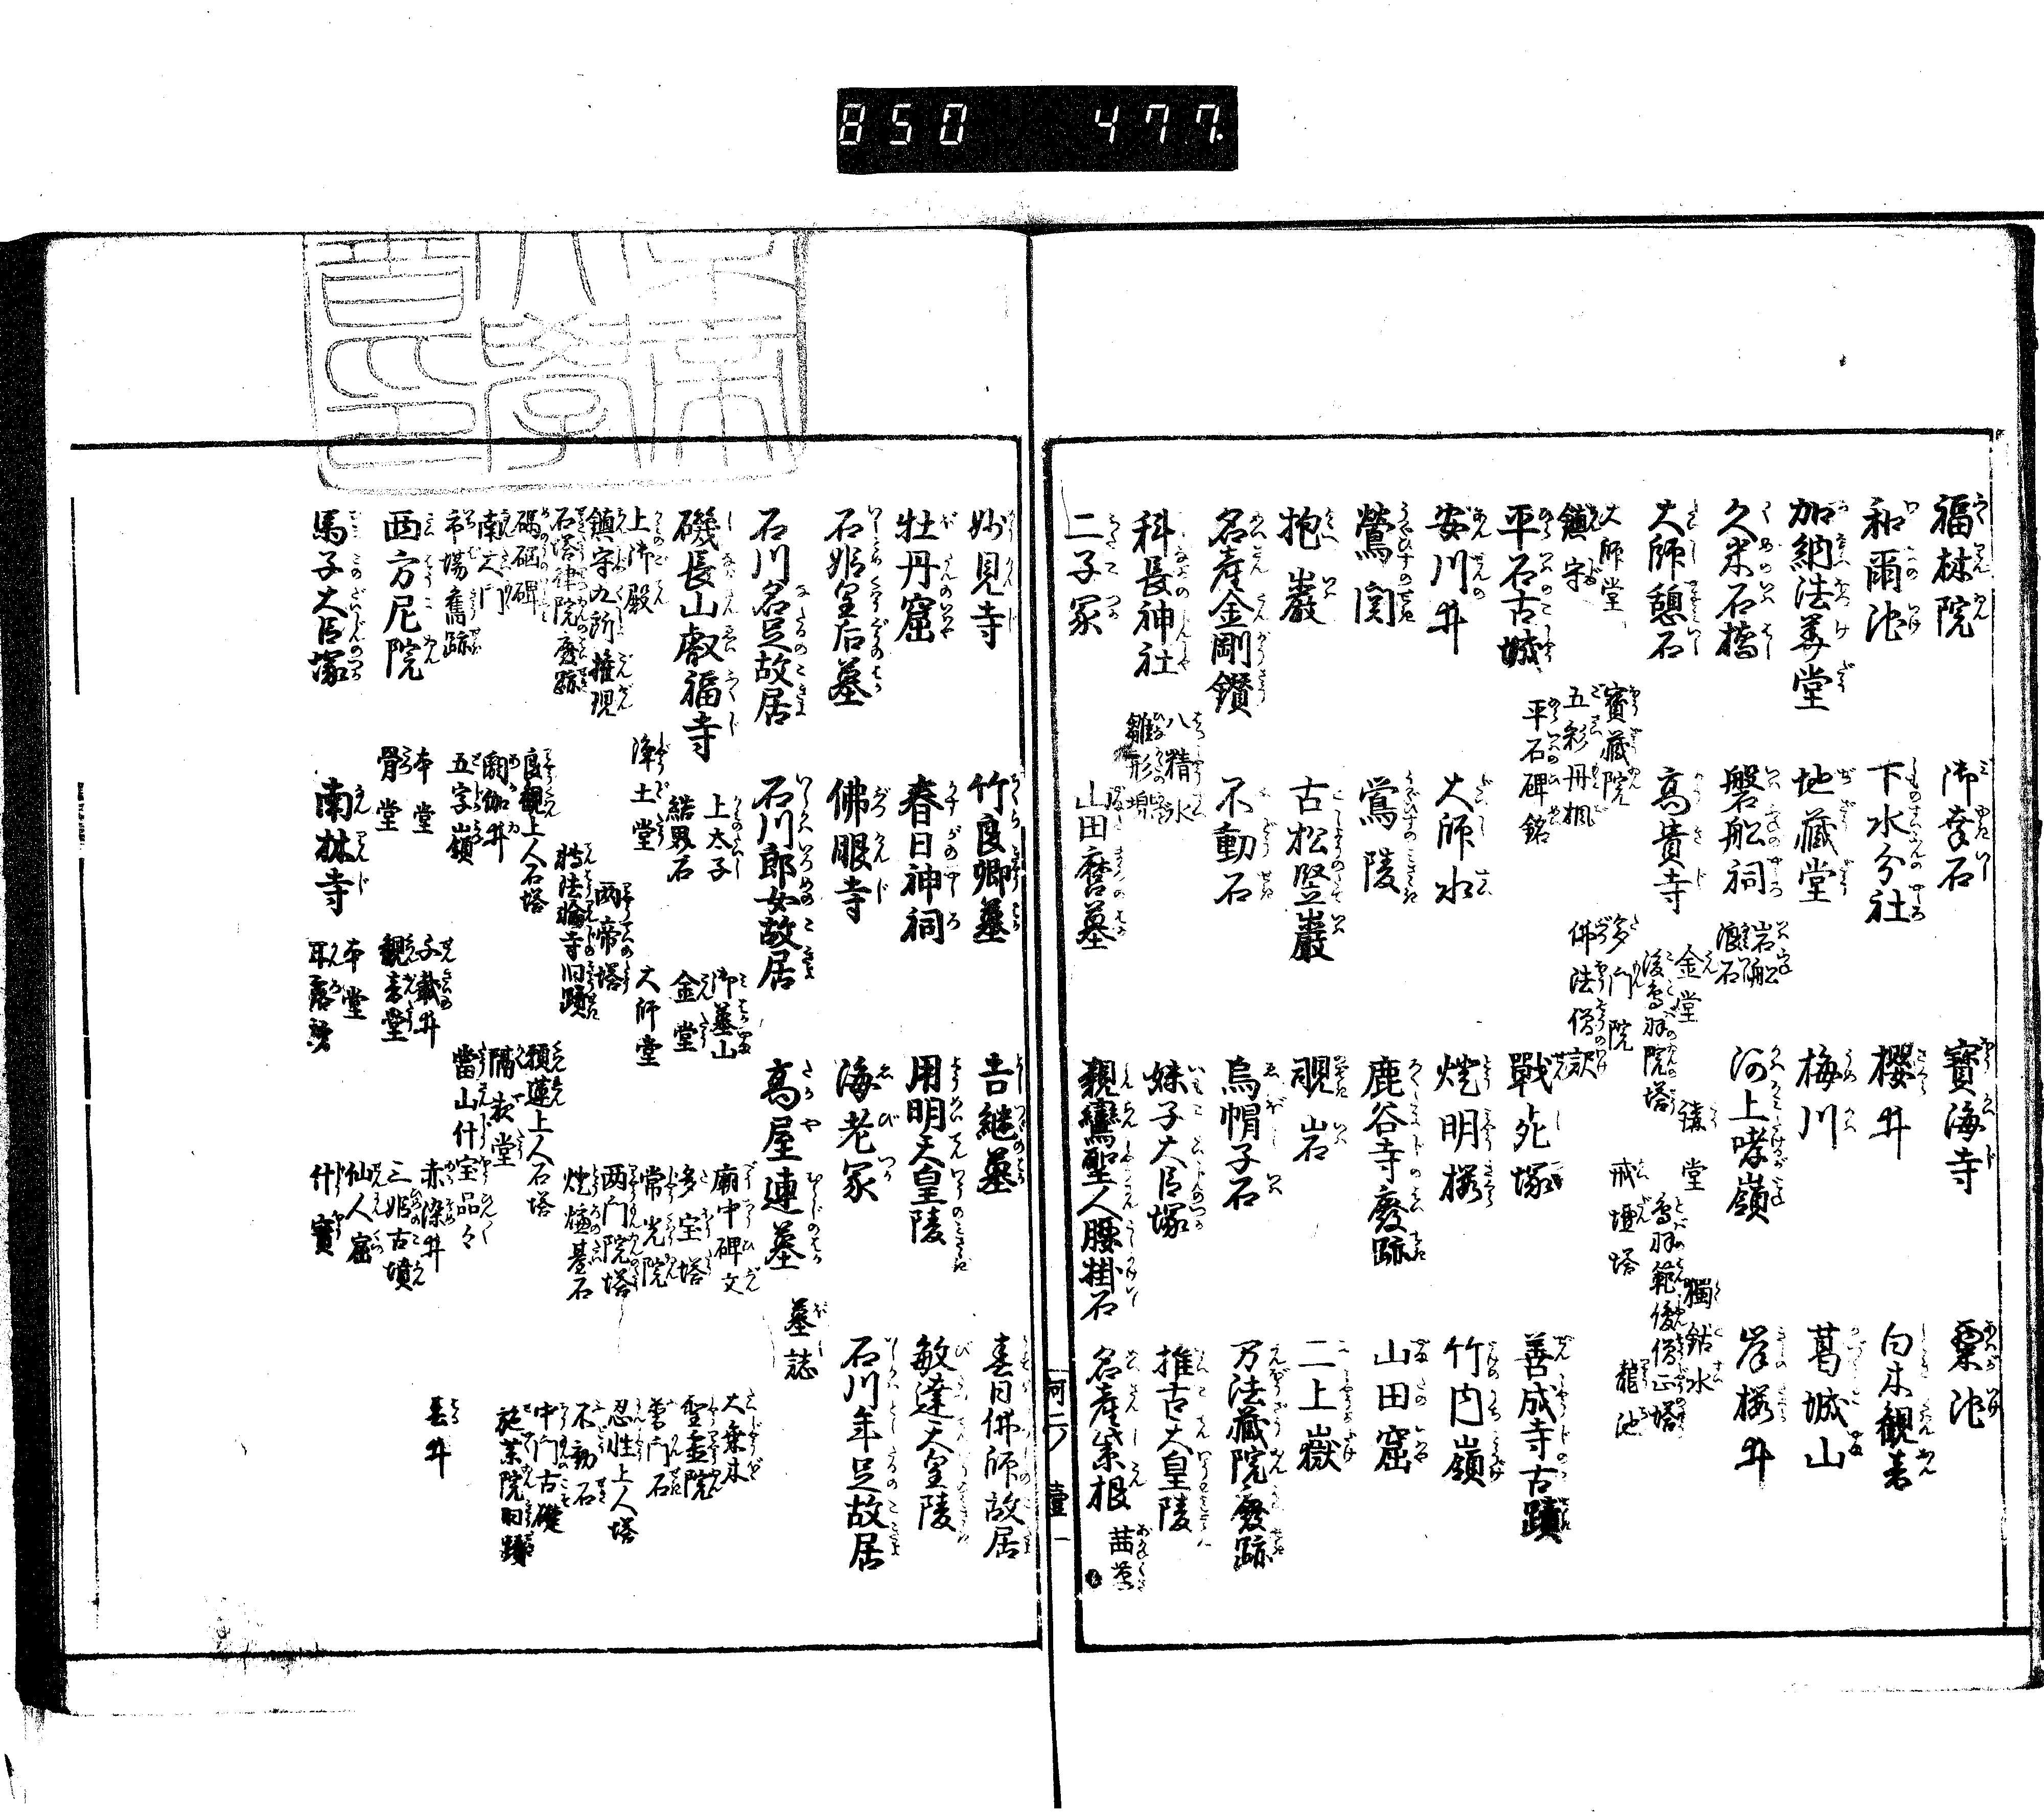 850 477.
福林院 御幸石 寶海寺 粟池
和爾池 下水分社 櫻井 白木觀音
加納法華堂 地藏堂 梅川 葛城山
久米石橋 磐船祠 岩船 浪石 河上哮嶺 岸櫻井
大師憩石 高貴寺 金堂 講堂 獨鈷水
後鳥羽院塔 鳥羽範俊僧正塔
大師堂 寶藏院 多門院 戒壇塔 龍池
鎮守 五彩丹楓 佛法僧訳
平石古城 平石碑銘 戰死塚 善成寺古蹟
安川井 大師水 燈明櫻 竹内嶺
鶯関 鶯陵 鹿谷寺廢跡 山田窟
抱巖 古松竪巖 覗岩 二上嶽
名産金剛鑽 不動石 烏帽子石 万法藏院廢跡
科長神社 八精水 雛形塊 妹子大臣塚 推古天皇陵
二子冢 山田麿墓 親鸞聖人腰掛石 名産紫根 茜草
河二ノ 壹
妙見寺 竹良卿墓 吉継墓 春日佛師故居
牡丹窟 春日神祠 用明天皇陵 敏達天皇陵
石姫皇后墓 佛眼寺 海老冢 石川年足故居
石川名足故居 石川郎女故居 高屋連墓 墓誌
磯長山叡福寺 上太子 御墓山 廟中碑文 大乗木
結界石 金堂 多宝塔 聖霊院
上御殿 浄土堂 大師堂 常光院 普門石
鎮守九所権現 両帝塔 両門院塔 忍性上人塔
石塔律院廢跡 轉法輪寺旧蹟 燈爐基石 不動石
碼碯碑 良觀上人石塔 頓蓮上人石塔 中門古礎
南大門 閼伽井 隔夜堂 施薬院旧蹟
市場舊跡 五字嶺 當山什宝品々
本堂 千載井 赤染井 長井
西方尼院 骨堂 觀音堂 三姫古墳
本堂 仙人窟
馬子大臣塚 南林寺 什寶